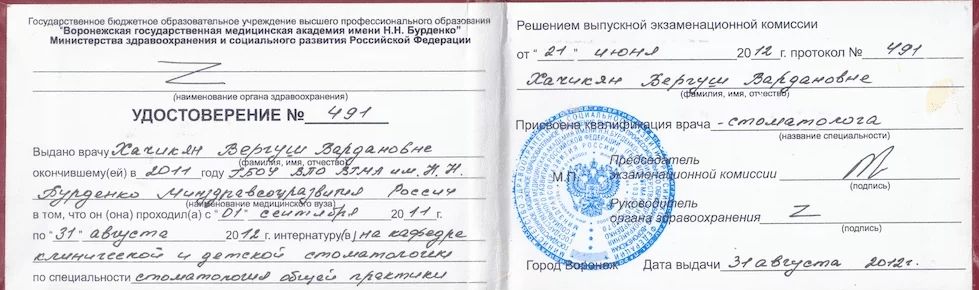 Государственное бюджетное образовательное учреждение высшего профессионального образования
"Воронежская государственная медицинская академия имени Н.Н. Бурденко"
Министерства здравоохранения и социального развития Российской Федерации
Z
(наименование органа здравоохранения)
УДОСТОВЕРЕНИЕ № 491
Выдано врачу Хачикян Вергуш Вардановне
(фамилия, имя, отчество)
окончившему(ей) в 2011 году ГБОУ ВПО ВГМА им. Н.Н.
Бурденко Минздравсоцразвития России
(название медицинского вуза)
в том, что он (она) проходил(а) с "01" сентября 2011 г.
по "31" августа 2012 г. интернатуру(в) на кафедре
клинической и детской стоматологии
по специальности стоматология общей практики
Решением выпускной экзаменационной комиссии
от "21" июня 2012 г. протокол № 491
Хачикян Вергуш Вардановне
(фамилия, имя, отчество)
Присвоена квалификация врача - стоматолога
(название специальности)
Председатель
М.П. экзаменационной комиссии
(подпись)
Руководитель
органа здравоохранения Z
(подпись)
Город Воронеж Дата выдачи 31 августа 2012г.